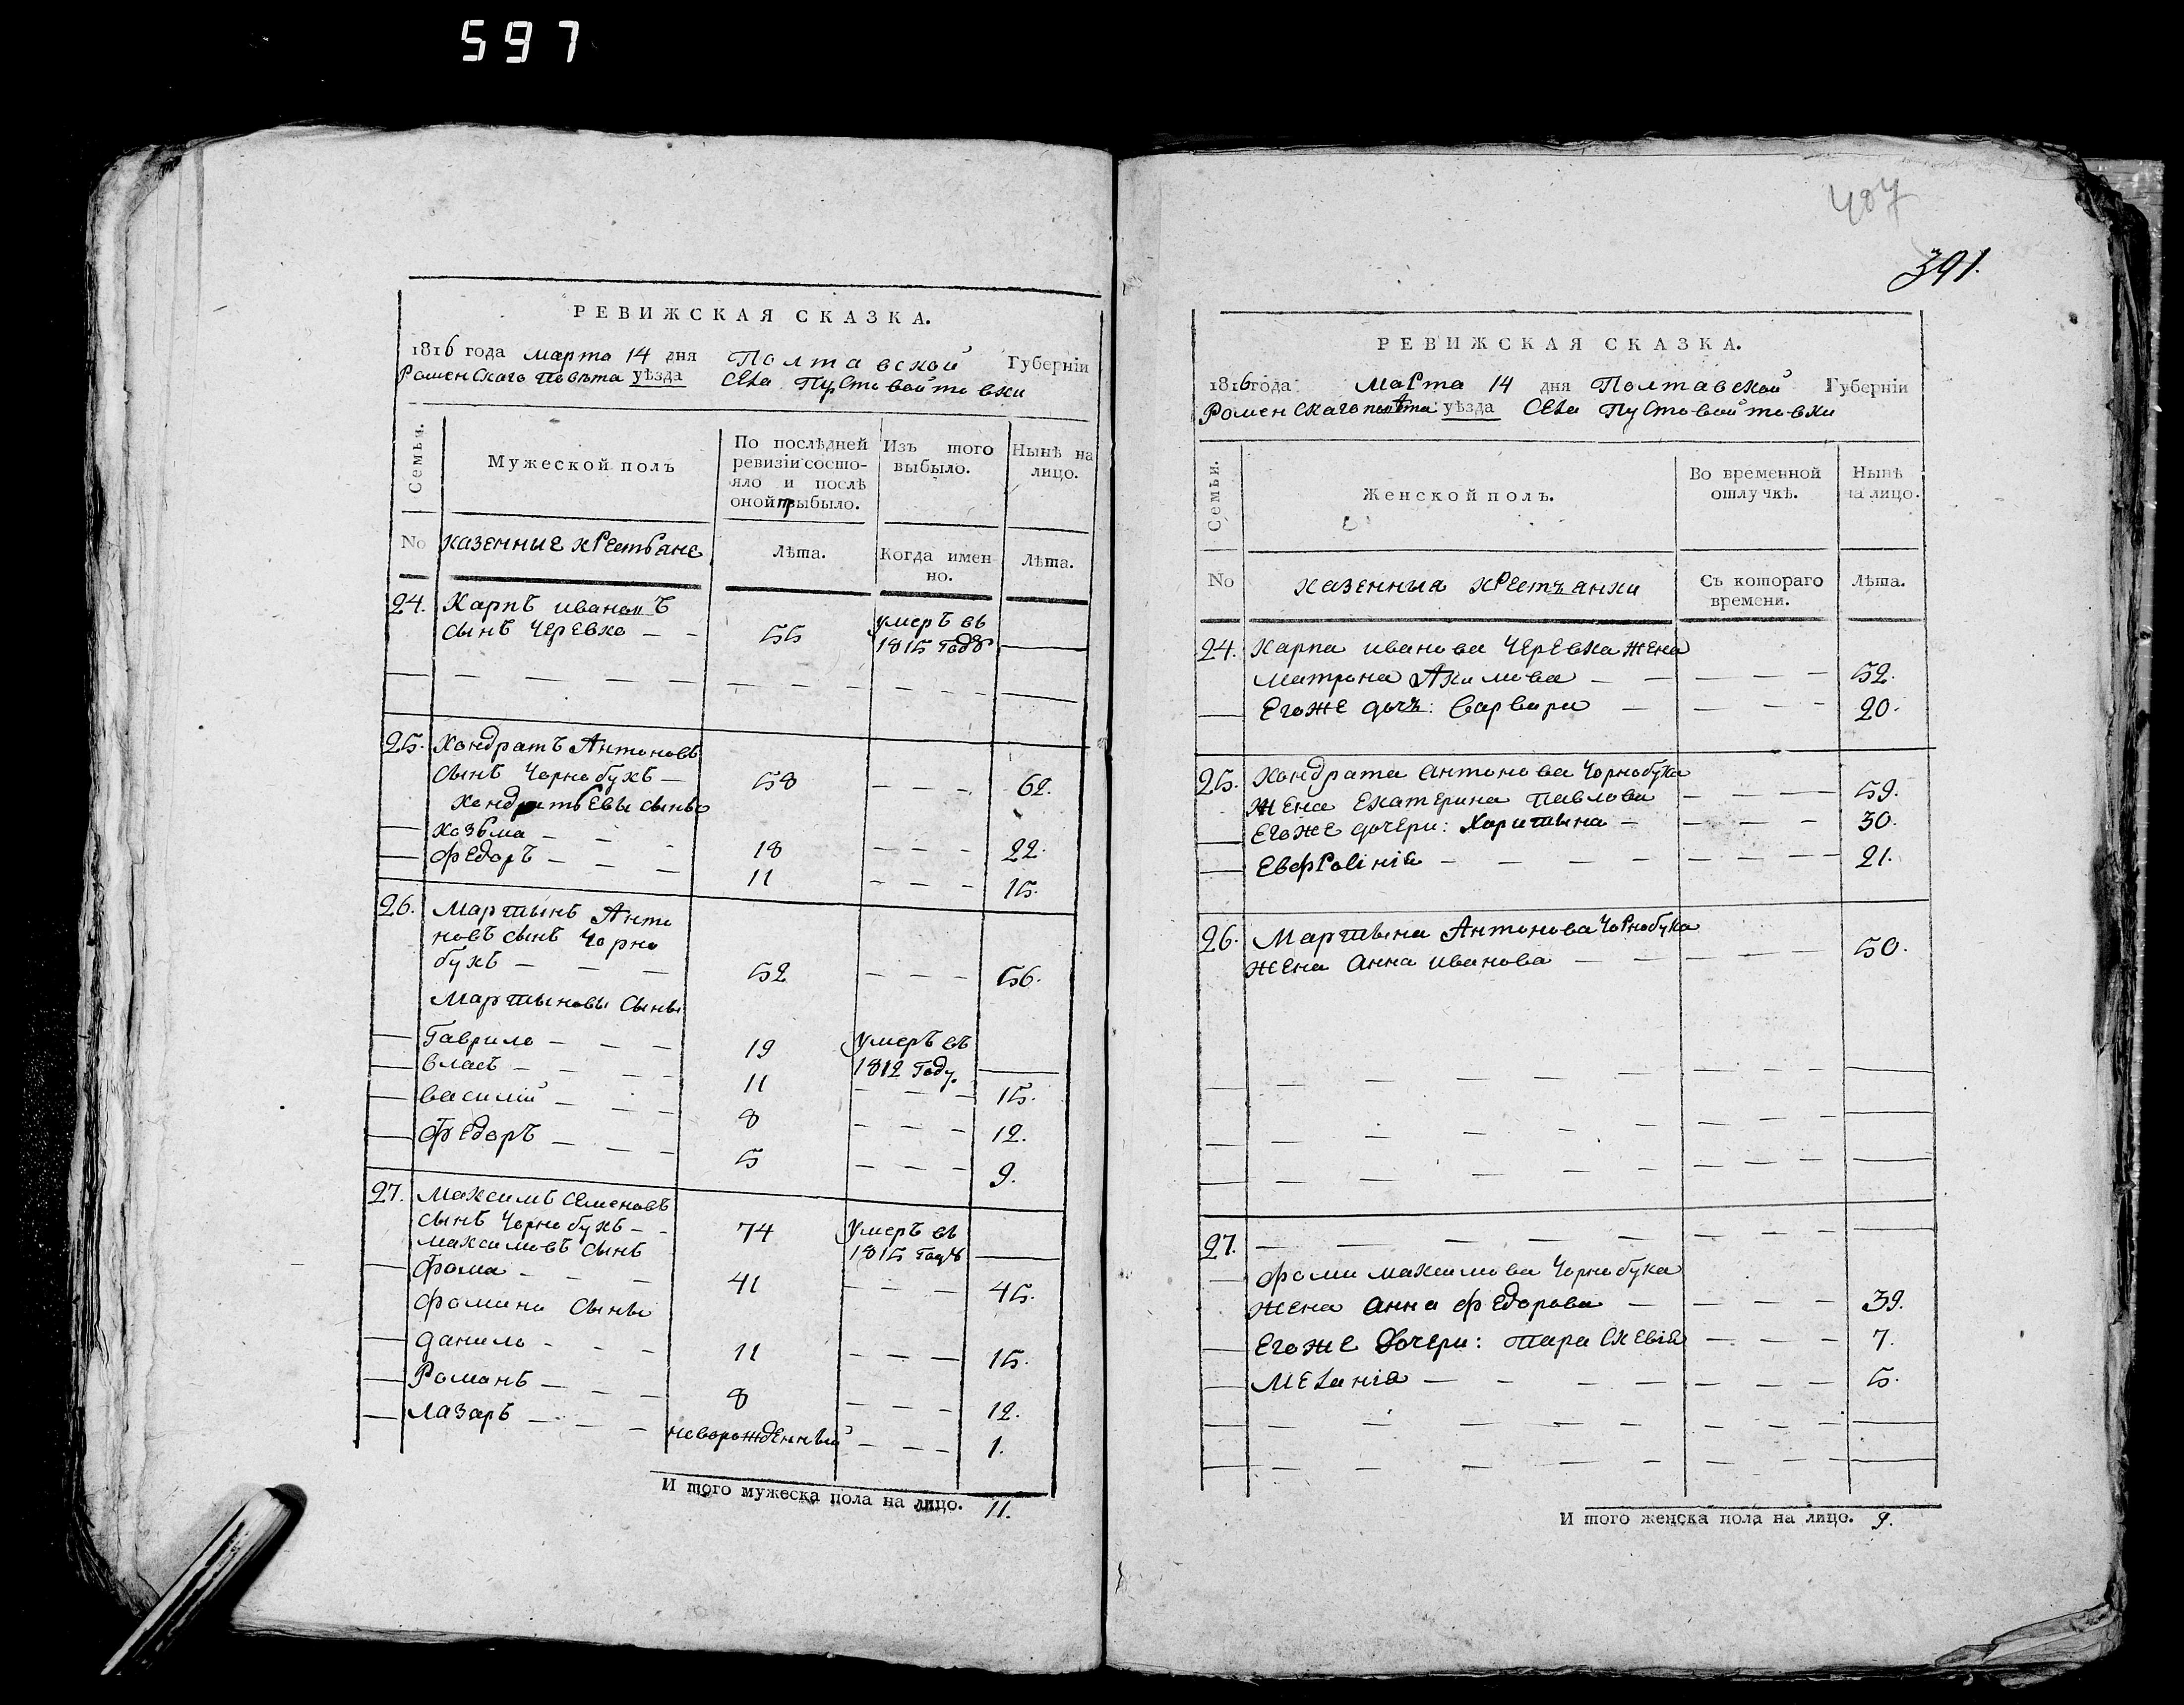 597
РЕВИЖСКАЯ СКАЗКА.
1816 года марта 14 дня Полтавской Губерніи
Роменскаго повѣта уѣзда села Пустовойтовки
Семьи.
Мужеской полъ
По послѣдней ревизіи состо-
яло и послѣ
оной прыбыло.
Изъ того
выбыло.
Нынѣ на
лицо.
No казенние крестьяне
Лѣта.
Когда имен
но.
Лѣта.
24. Карпъ ивановъ
сынъ Черевко — — 55 умеръ въ
1815 годѣ
25. Кондратъ Антоновъ
сынъ Чорнобукъ — 58 — — — 62.
Кондратьевы сыны
козьма — — — 18 — — — 22.
федоръ — — — 11 — — — 15.
26. Мартынъ Анто
новъ сынъ Чорно
букъ — — — 52 — — — 56.
Мартыновы сыны
Гаврило — — — 19 умеръ въ
1812 году.
власъ — — — 11 — — 15.
василій — — — 8 — — — 12.
федоръ — — — 5 — — — 9.
27. Максимъ Семеновъ
сынъ Чорнобукъ — — 74 умеръ въ
1815 годѣ
максимовъ сынъ
фома — — — 41 — — — 45.
фомини сыны
данило — — — 11 — — — 15.
Романъ — — — 8 — — — 12.
лазарь — — — новорожденный — — — 1.
И того мужеска пола на лицо. 11.
407
391.
РЕВИЖСКАЯ СКАЗКА.
1816 года Марта 14 дня Полтавской Губерніи
Роменскаго повѣта уѣзда села Пустовойтовки
Семьи.
Женской полъ.
Во временной
отлучкѣ.
Нынѣ
на лицо.
No казенныя крестъянки
Съ котораго
времени.
Лѣта.
24. Карпа иванова Черевка жена
матрона Акимова — — — — — 52.
Егоже дочь: варвара — — — — 20.
25. Кондрата антонова Чорнобука
жена Екатерина павлова — — — — 59.
Егоже дочери: Харитына — — — — 30.
Евфросинія — — — — — — — — 21.
26. Мартына Антонова Чорнобука
жена анна иванова — — — — — 50.
27. — — — — — — — —
фоми максимова Чорнобука
жена анна федорова — — — — 39.
Егоже дочери: параскевія — — — 7.
меланія — — — — — — — 5.
И того женска пола на лицо. 9.